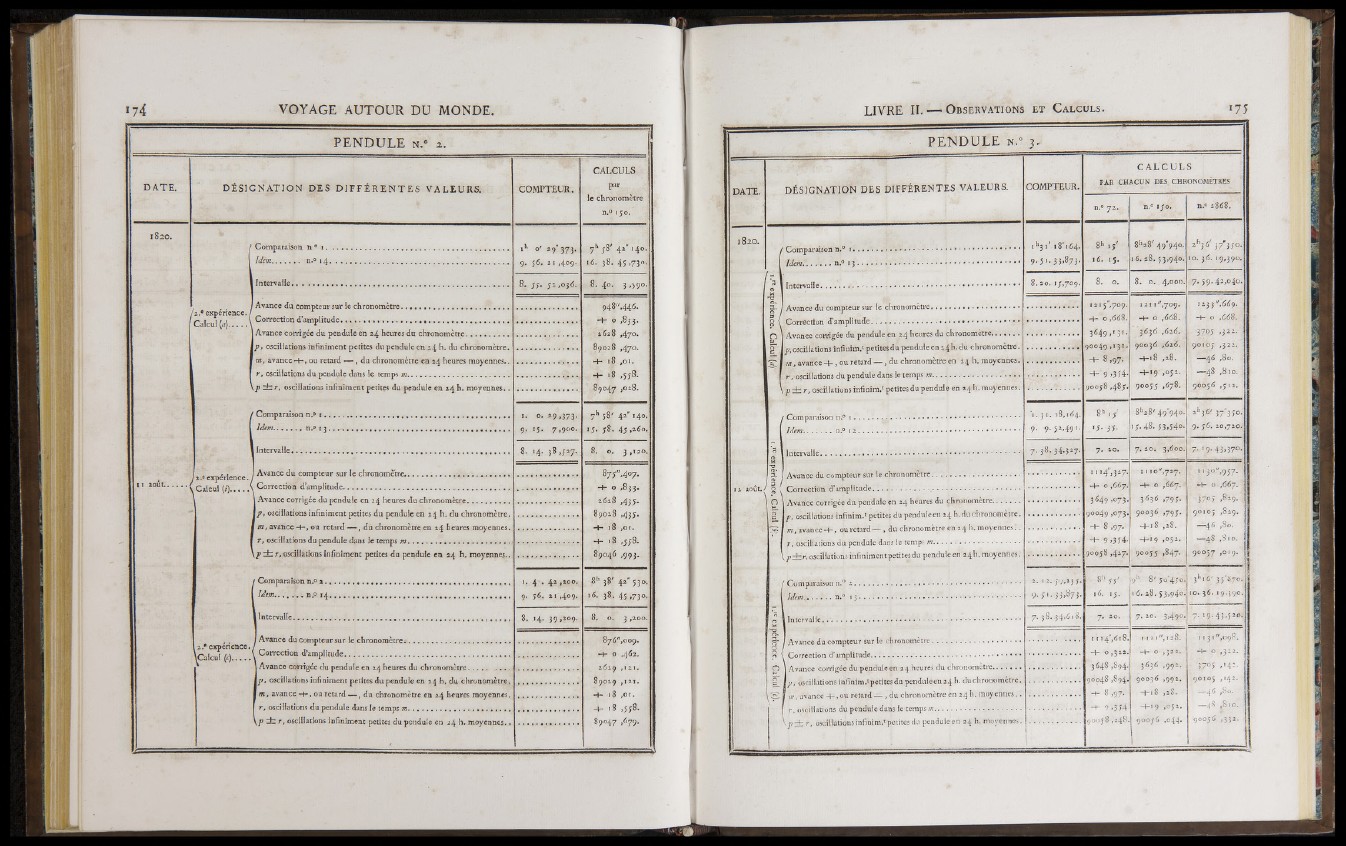 174 VOYAGE AUTOUR DU MONDE.
PENDULE N.° 2.
DATE. DÉSIGNATION DES DIFFÉRENTES VALEURS. COMPTEUR. CALCULS par le chronomètre n.° 150.
1820.
2.e expérience. Calcul (e).....
Comparaison n.° 1. 1h 0' 29"373. 7h 58' 42" 140.
Idem....... n.° 14. 9. 56. 21,409. 16. 38. 45,730.
Intervalle. 8. 55. 52,036. 8. 40. 3,590.
Avance du compteur sur le chronomètre. 948",446.
Correction d'amplitude. + 0,833.
Avance corrigée du pendule en 24 heures du chronomètre. 2628,470.
p, oscillations infiniment petites du pendule en 24 h. du chronomètre. 89028,470.
m, avance +, ou retard —, du chronomètre en 24 heures moyennes. + 18,01.
r, oscillations du pendule dans le temps m. + 18,558.
p ± r, oscillations infiniment petites du pendule en 24 h. moyennes. 89047,028.
11 août.....
2.e expérience. Calcul (i).....
Comparaison n.° 1. 1. 0. 29,373. 7h 58' 42" 140.
Idem....... n.° 13. 9. 15. 7,900. 15. 58. 45,260.
Intervalle. 8. 14. 38,527. 8. 0. 3,120.
Avance du compteur sur le chronomètre. 875",407.
Correction d'amplitude. + 0,833.
Avance corrigée du pendule en 24 heures du chronomètre. 2628,435.
p, oscillations infiniment petites du pendule en 24 h. du chronomètre. 89028,435.
m, avance +, ou retard —, du chronomètre en 24 heures moyennes. + 18,01.
r, oscillations du pendule dans le temps m. + 18,558.
p ± r, oscillations infiniment petites du pendule en 24 h. moyennes. 89046,993.
2.e expérience. Calcul (o).....
Comparaison n.° 2. 1. 4. 42,200. 8h 38' 42" 530.
Idem....... n.° 14. 9. 56. 21,409. 16. 38. 45,730.
Intervalle. 8. 14. 39,209. 8. 0. 3,200.
Avance du compteur sur le chronomètre. 876",009.
Correction d'amplitude. + 0,462.
Avance corrigée du pendule en 24 heures du chronomètre. 2629,121.
p, oscillations infiniment petites du pendule en 24 h. du chronomètre. 89029,121.
m, avance +, ou retard —, du chronomètre en 24 heures moyennes. + 18,01.
r, oscillations du pendule dans le temps m. + 18,558.
p ± r, oscillations infiniment petites du pendule en 24 h. moyennes. 89047,679.
LIVRE II. — OBSERVATIONS ET CALCULS. 175
PENDULE N.° 3.
DATE. DÉSIGNATION DES DIFFÉRENTES VALEURS. COMPTEUR. CALCULS PAR CHACUN DES CHRONOMÈTRES
n.° 72. n.° 150. n.° 2868.
1820.
Comparaison n.° 1. 1h31' 18"164. 8h 15' 8h28' 49"940. 2h36' 37"350.
Idem....... n.° 13. 9. 51. 33,873. 16. 15. 16. 28. 53,940. 10. 36. 19,390.
Intervalle. 8. 20. 15,709. 8. 0. 8. 0. 4,000. 7. 59. 42,040.
Avance du compteur sur le chronomètre. 1215",709. 1211",709. 1233",669.
Correction d'amplitude. + 0,668. + 0,668. + 0,668.
Avance corrigée du pendule en 24 heures du chronomètre. 3649,131. 3636,626. 3705,322.
p, oscillations infinim.t petites du pendule en 24 h. du chronomètre. 90049,131. 90036,626. 90105,322.
m, avance +, ou retard —, du chronomètre en 24 h. moyennes. + 8,97. +18,28. —46,80.
r, oscillations du pendule dans le temps m. + 9,354. +19,052. —48,810.
p ± r, oscillations infinim.t petites du pendule en 24 h. moyennes. 90058,485. 90055,678. 90056,512.
12 août.
Comparaison n.° 1. 1. 31. 18,164. 8h 15' 8h28' 49"940. 2h36' 37"350.
Idem....... n.° 12. 9. 9. 52,491. 15. 35. 15. 48. 53,540. 9. 56. 20,720.
Intervalle. 7. 38. 34,327. 7. 20. 7. 20. 3,600. 7. 19. 43,370.
Avance du compteur sur le chronomètre. 1114",327. 1110",727. 1130",957.
Correction d'amplitude. + 0,667. + 0,667. + 0,667.
Avance corrigée du pendule en 24 heures du chronomètre. 3649,073. 3636,795. 3705,829.
p, oscillations infinim.t petites du pendule en 24 h. du chronomètre. 90049,073. 90036,795. 90105,829.
m, avance +, ou retard —, du chronomètre en 24 h. moyennes. + 8,97. +18,28. —46,80.
r, oscillations du pendule dans le temps m. + 9,354. +19,052. —48,810.
p ± r, oscillations infiniment petites du pendule en 24 h. moyennes. 90058,427. 90055,847. 90057,019.
Comparaison n.° 2. 8h 55'
Idem....... n.° 13. 9. 51. 33,873. 16. 15. 16. 28. 53,940. 10. 36. 19,390.
Intervalle. 7. 38. 34,618. 7. 20. 7. 20. 3,490. 7. 19. 43,520.
Avance du compteur sur le chronomètre. 1114",618. 1111",128. 1131",098.
Correction d'amplitude. + 0,322. + 0,322. + 0,322.
Avance corrigée du pendule en 24 heures du chronomètre. 3648,894. 3636,992. 3705,142.
p, oscillations infinim.t petites du pendule en 24 h. du chronomètre. 90048,894. 90036,992. 90105,142.
m, avance +, ou retard —, du chronomètre en 24 h. moyennes. + 8,97. +18,28. —46,80.
r, oscillations du pendule dans le temps m. + 9,354. +19,052. —48,810.
p ± r, oscillations infinim.t petites du pendule en 24 h. moyennes. 90058,248. 90056,044. 90056,332.